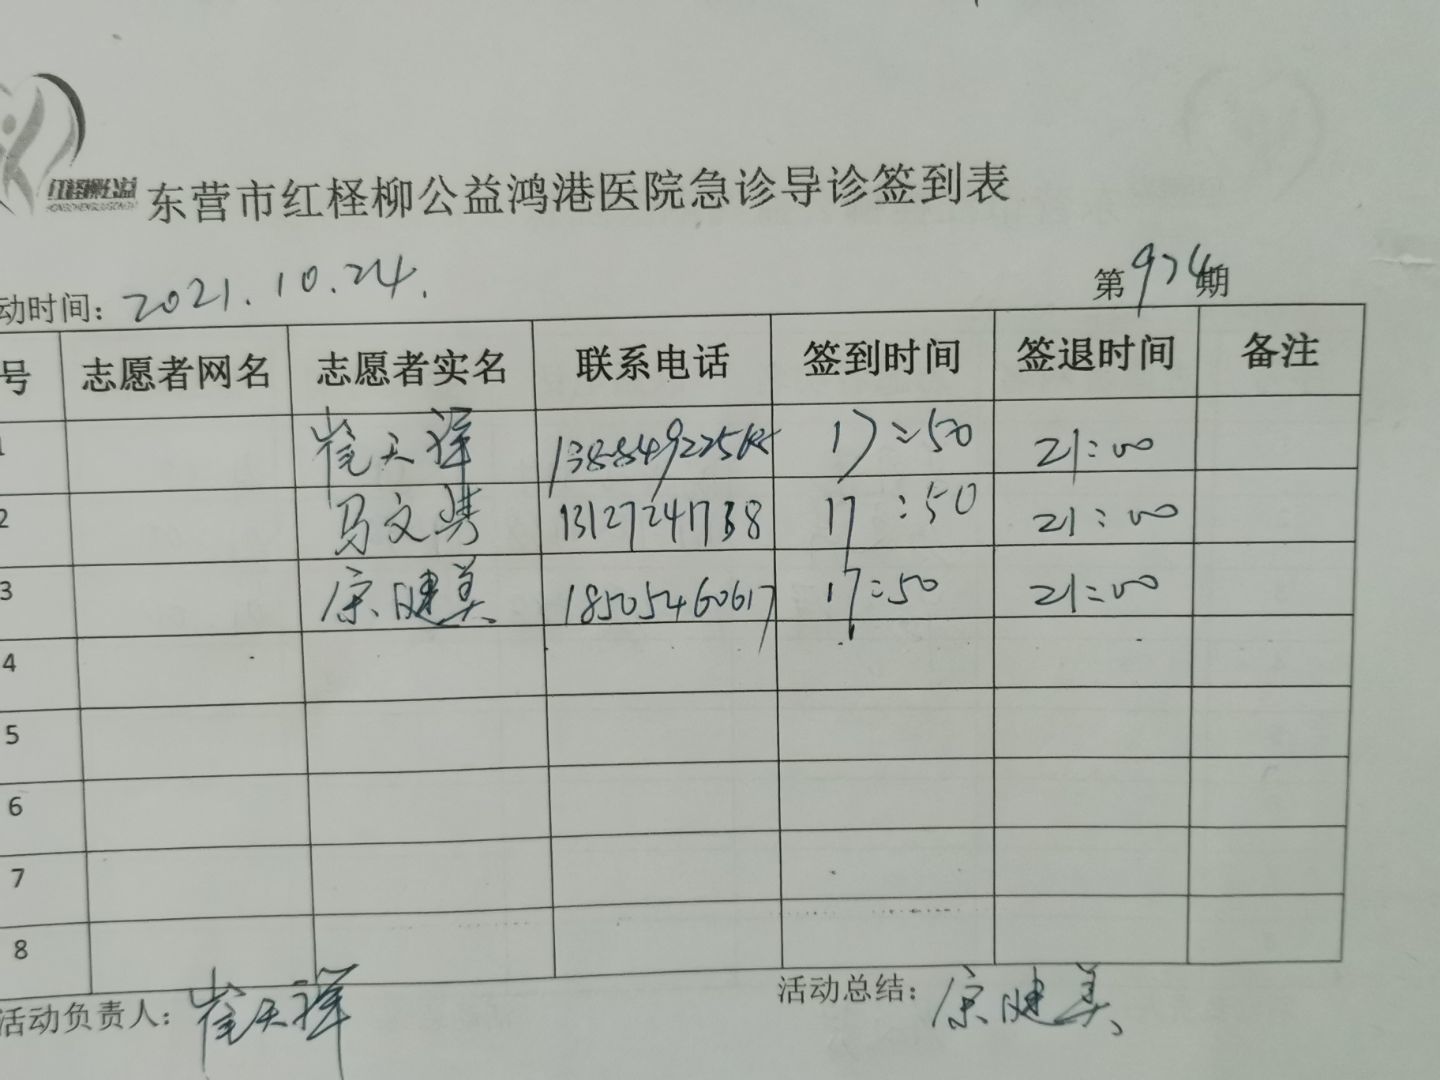 红柽柳公益
东营市红柽柳公益鸿港医院急诊导诊签到表
动时间: 2021.10.24. 第974期
号 志愿者网名 志愿者实名 联系电话 签到时间 签退时间 备注
1 崔天祥 17:50 21:00
2 马文隽 13127241738 17:50 21:00
3 康健美 18505460617 17:50 21:00
4
5
6
7
8
活动负责人: 崔天祥 活动总结: 康健美